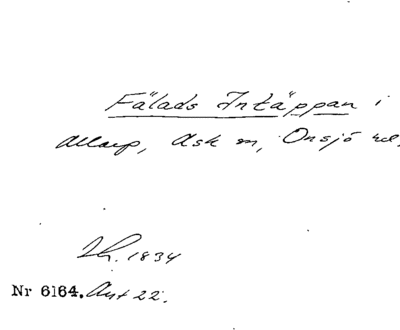 Fälads Intäppan i
Allarp, Ask sn, Onsjö hd.
Lh. 1834
Nr 6164. Avt 22.